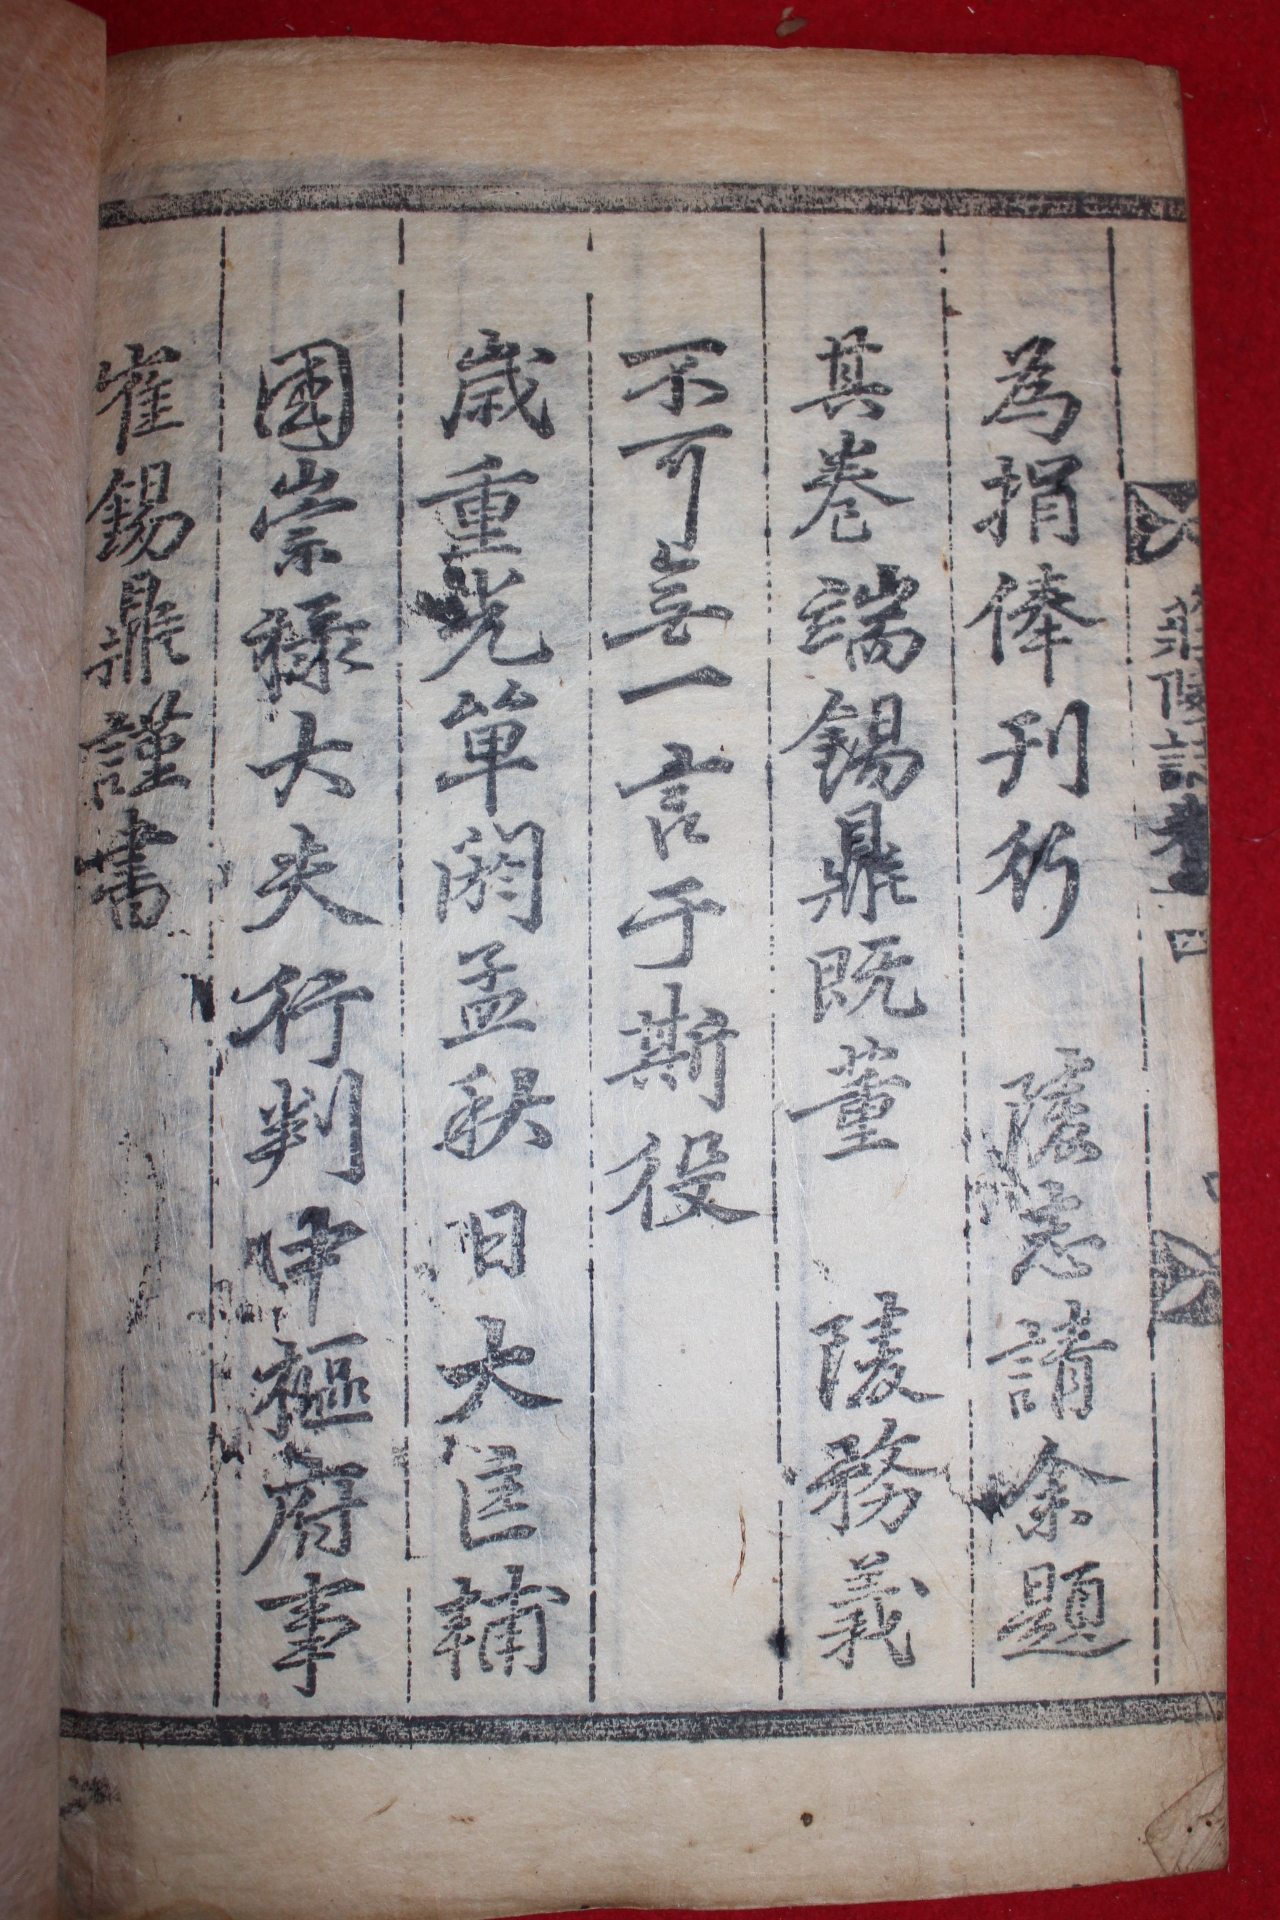 莊陵誌卷一 四
為捐俸刊行 陵窓請余題
其卷端錫鼎既董 陵務義
不可無一言于斯役
歲重光單閼孟秋日大匡輔
國崇祿大夫行判中樞府事
崔錫鼎謹書